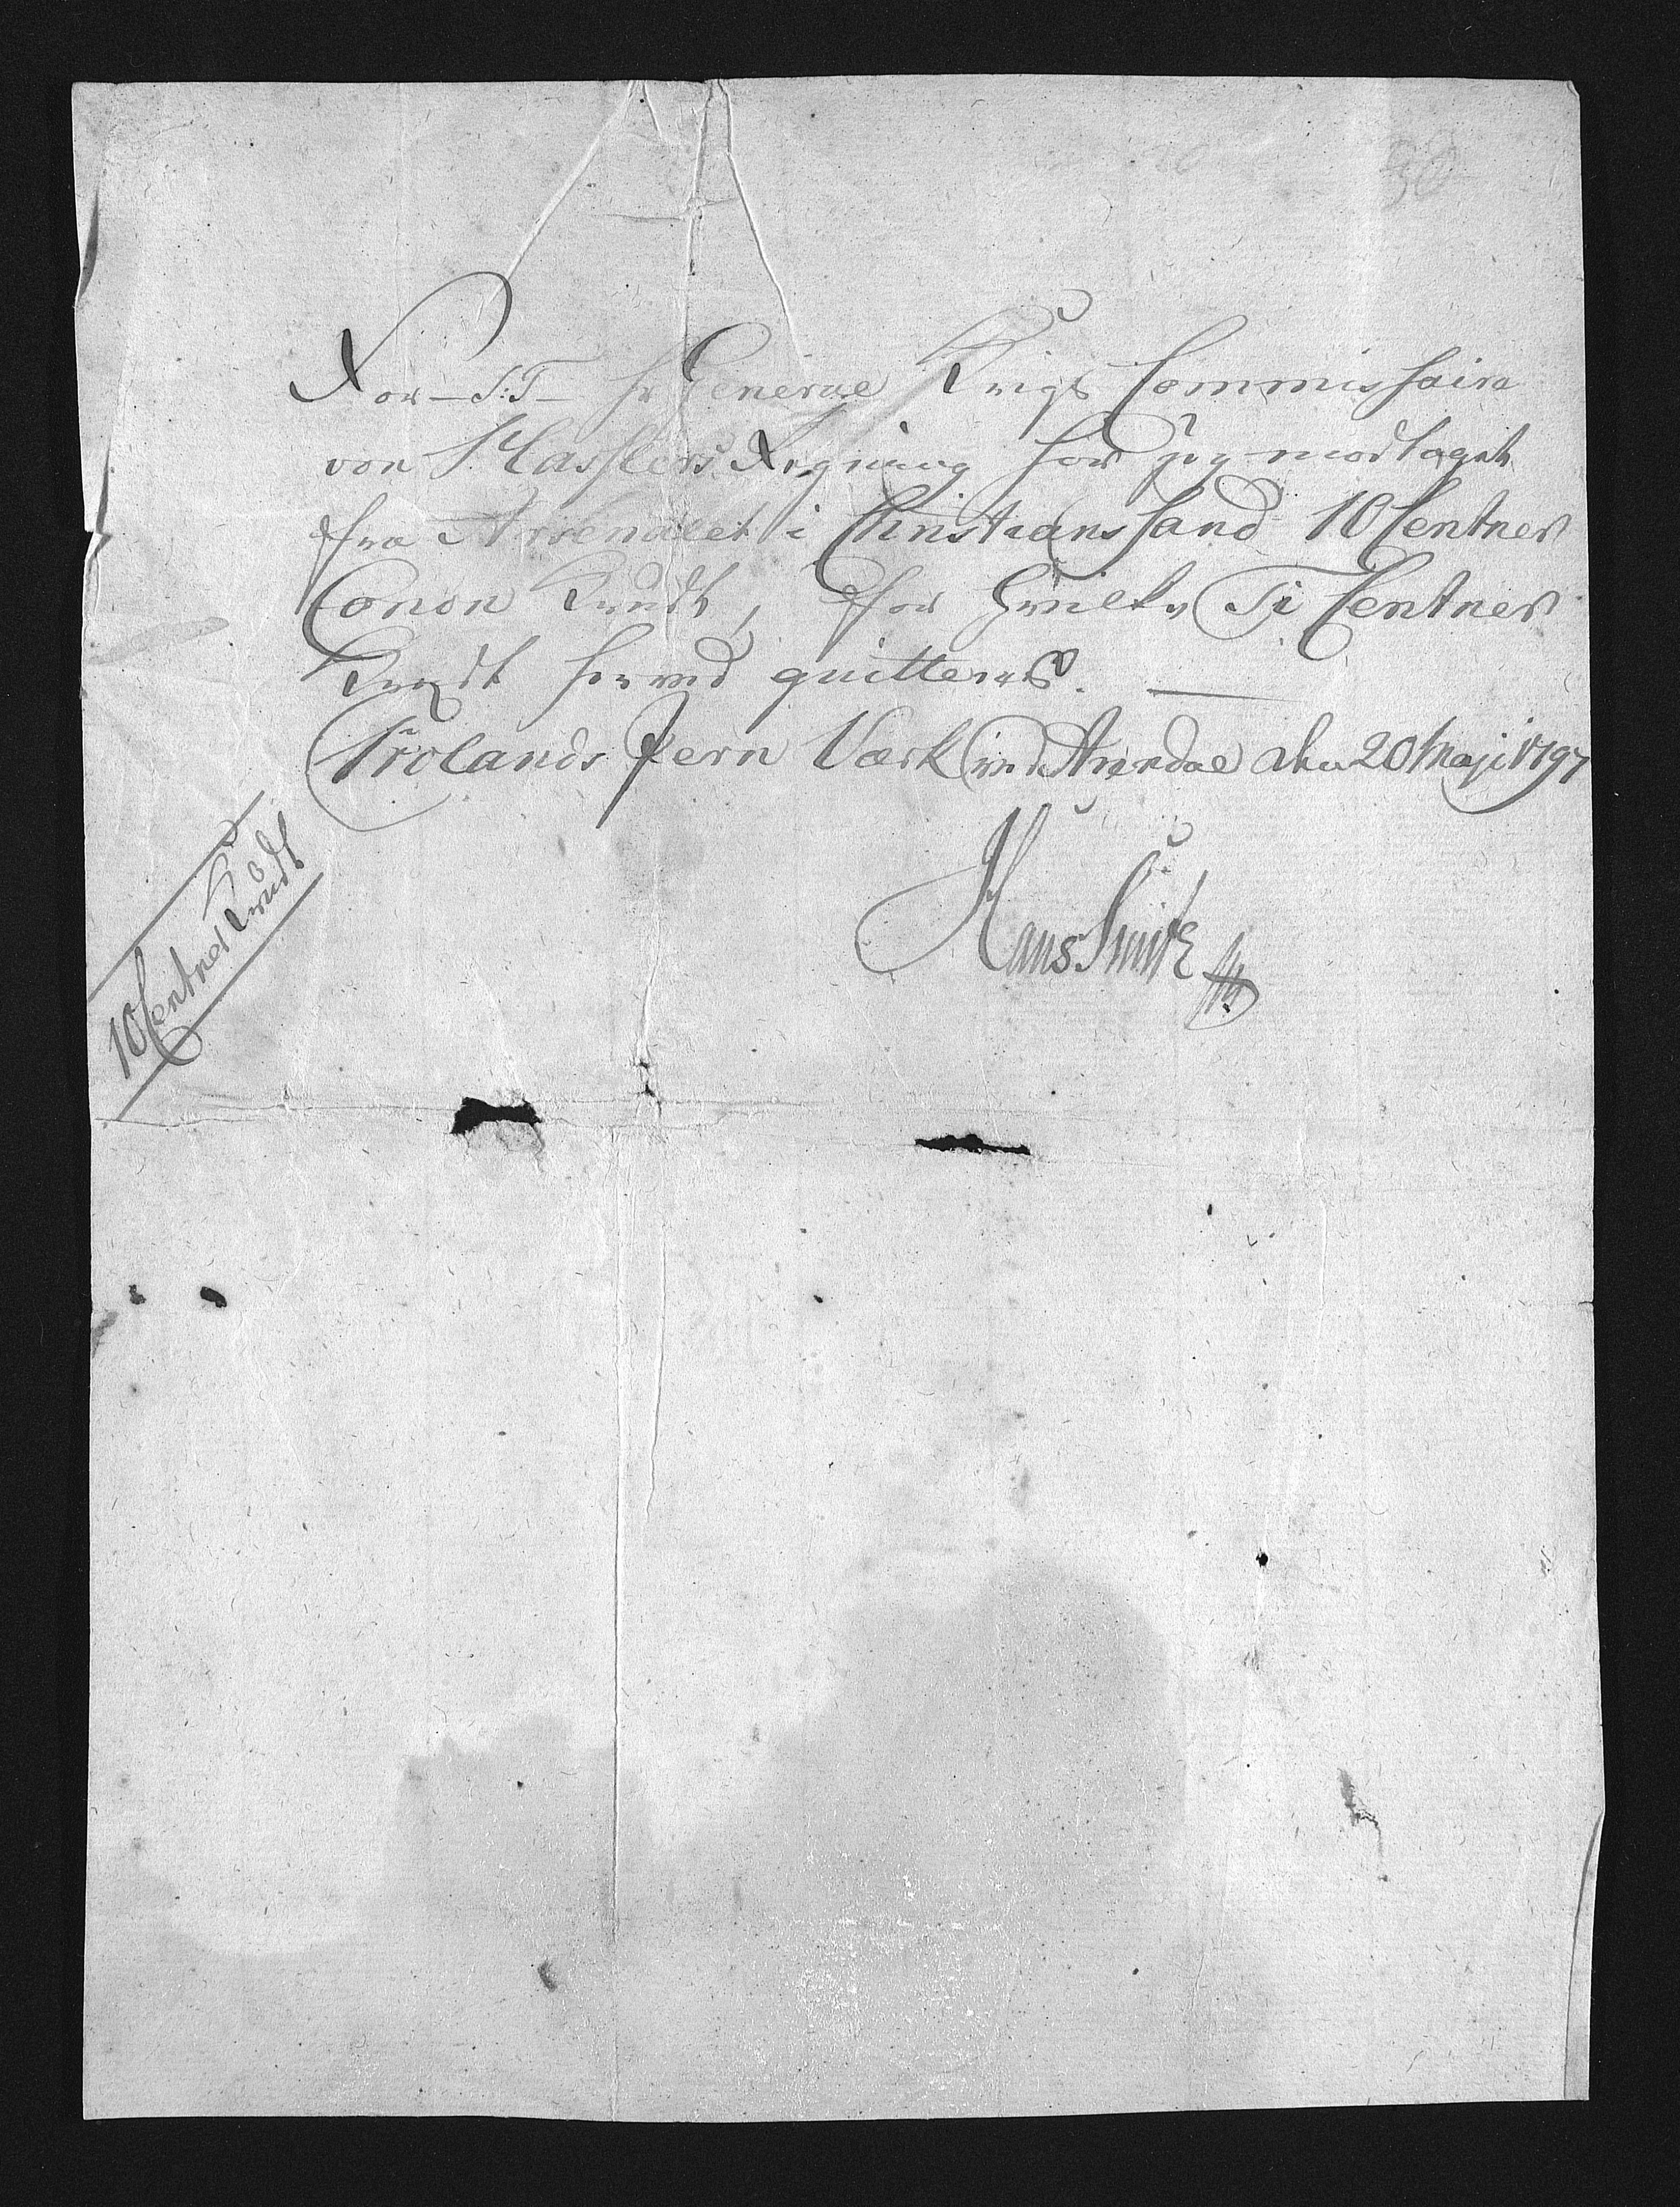 For – S: T – Hr General Krigs Commissaire
von Hasslers Regning har jeg modtaget
fra Arsenalet i Christiansand 10 Centner
Canon Krudt, for hvilke Ti Centner
Krudt herved quitteres.
Frolands Jern Værk ved Arendal den 20 Maji 1797
Hans Smith
10 Centner Krudt